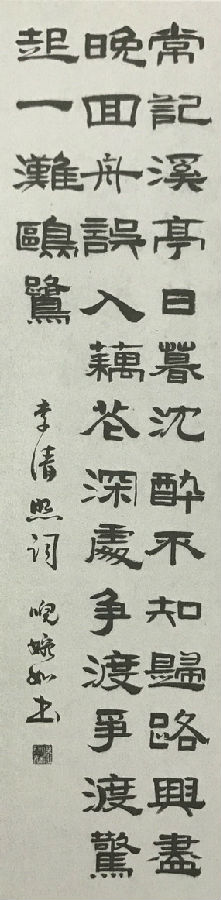 常記溪亭日暮沈醉不知歸路興盡
晚回舟誤入藕花深處争渡爭渡驚
起一灘鷗鷺
李清照词 倪婉如书